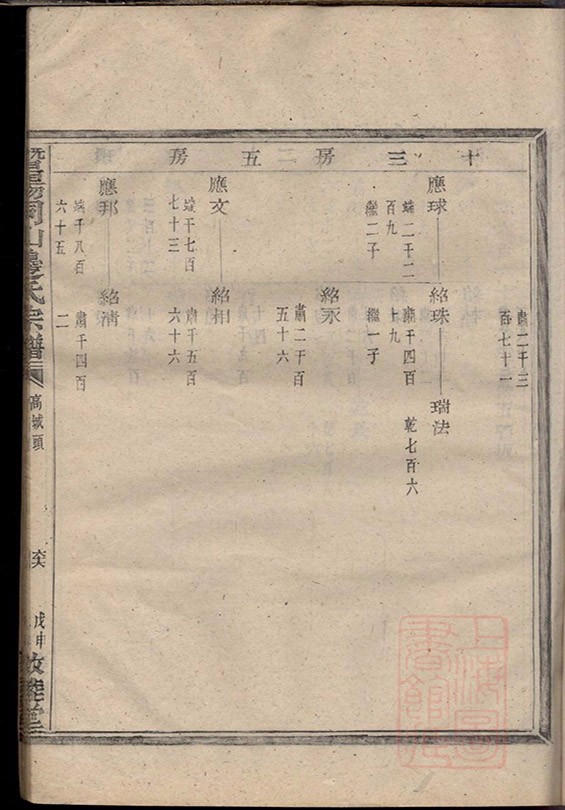 十三房二五房
肅二千三
百七十一
應球
紹珠
瑞法
端二千二
百九
繼二子
肅千四百
九
繼一子
乾七百六
紹永
肅二千百
五十六
應文
紹相
端千七百
七十三
肅千五百
六十六
應邦
紹清
端千八百
六十五
肅千四百
二
氏宗譜
高城頭
戊申
上海圖書館藏